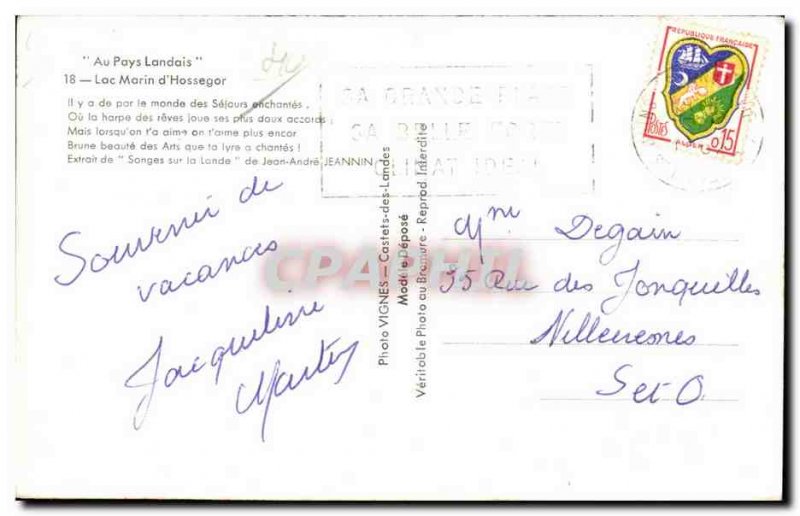 " Au Pays Landais "
18 — Lac Marin d'Hossegor
Il y a de par le monde des Séjours enchantés,
Où la harpe des rêves joue ses plus doux accords
Mais lorsqu'on t'a aimé on t'aime plus encor
Brune beauté des Arts que ta lyre a chantés !
Extrait de " Songes sur la Lande " de Jean-André JEANNIN
SA GRANDE
SA BELLE
CLIMAT IDEAL
REPUBLIQUE FRANÇAISE
POSTES
0,15
ALGER
Souvenir de
vacances
Jacqueline
Photo VIGNES — Castets-des-Landes
Modèle Déposé
Véritable Photo au Bromure - Reprod Interdite
Mme Degain
35 Rue des Jonquilles
Villecresnes
S et O.
CPAPHIL